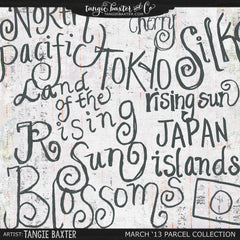 tangie baxter & Co
TANGIEBAXTER.COM
North
Cherry
Silk
Pacific
TOKYO
Land
of the
Rising
Sun
rising sun
JAPAN
islands
Blossoms
ARTIST: TANGIE BAXTER
MARCH '13 PARCEL COLLECTION